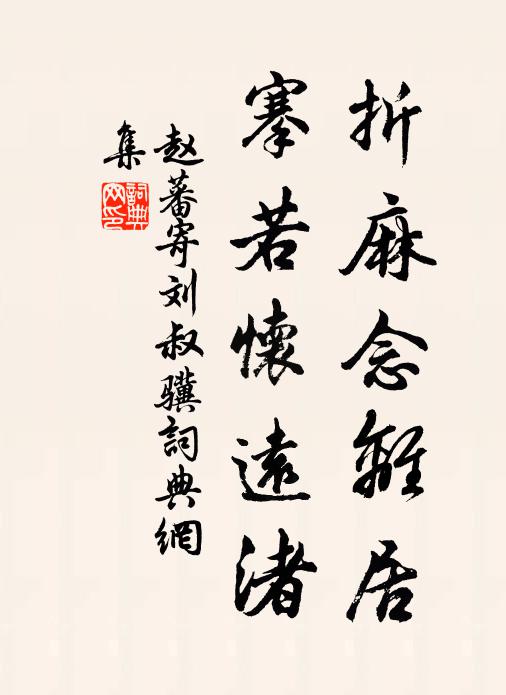 折麻念離居
搴若懷遠渚
赵蕃寄刘叔骥詞典網
集
詞典網印